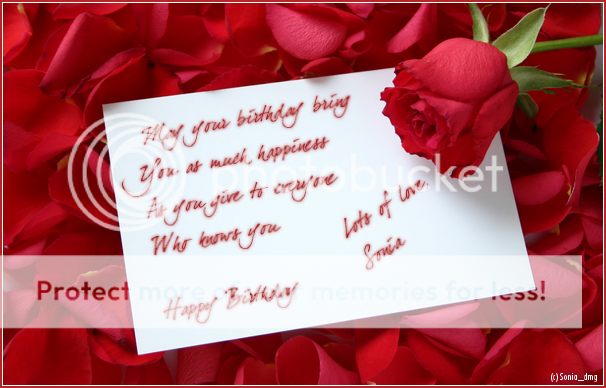 May your birthday bring
You as much happiness
As you give to everyone
Who knows you
Lots of love,
Sonia
Happy Birthday
photobucket
Protect more of your memories for less!
(c)Sonia_dmg